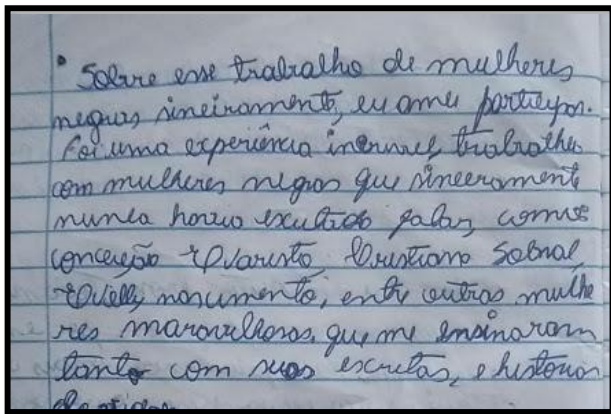 • Sobre esse trabalho de mulheres
negras sinceiramente, eu amei participar.
Foi uma experiência incrivel trabalhar
com mulheres negras que sinceramente
nunca havia escultado falar, como
conceição Evaristo, Cristiane Sobral,
Evelly nascimento, entre outras mulhe
res maravilhosas, que me ensinaram
tanto com suas escritas, e historias
de vidas